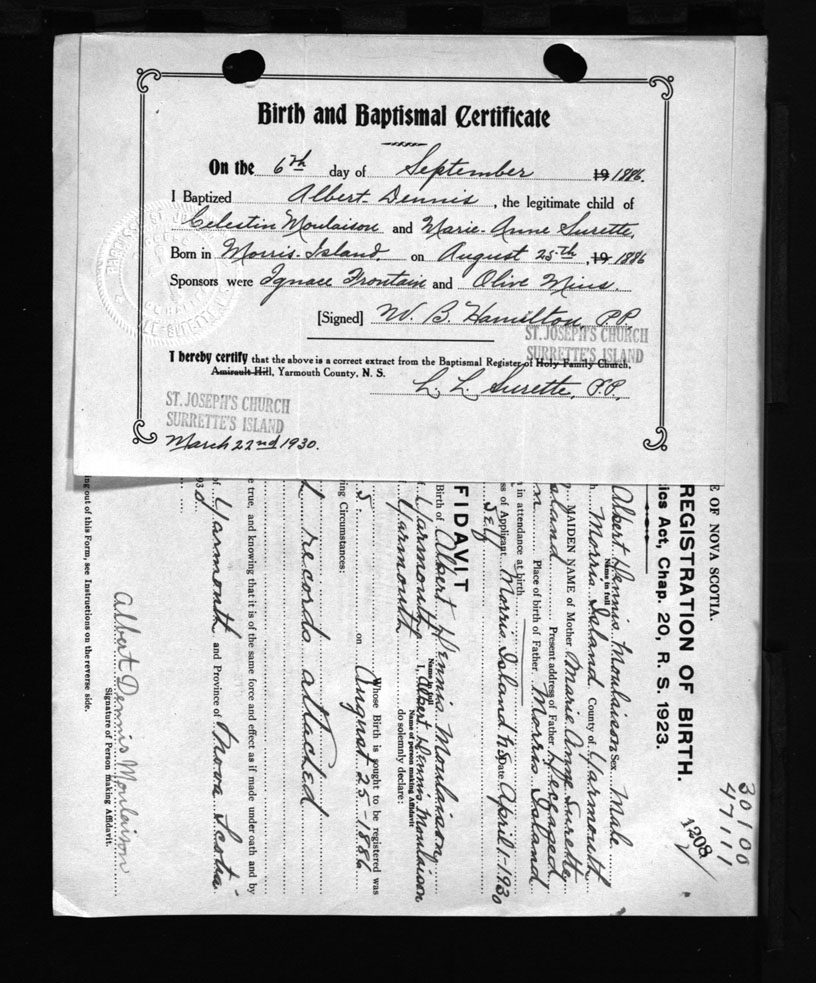 Birth and Baptismal Certificate
On the 6th day of September 19 1886.
I Baptized Albert Dennis, the legitimate child of
Celestin Moulaison and Marie-Anne Surette,
Born in Morris Island on August 25th, 19 1886
Sponsors were Ignace Frontain and Olive Mius.
[Signed] W. B. Hamilton, P.P.
ST. JOSEPH'S CHURCH
SURRETTE'S ISLAND
I hereby certify that the above is a correct extract from the Baptismal Register of Holy Family Church,
Amirault Hill, Yarmouth County, N. S.
L. L. Surette, P.P.
ST. JOSEPH'S CHURCH
SURRETTE'S ISLAND
March 22nd 1930.
30100
47111
1208
E OF NOVA SCOTIA.
REGISTRATION OF BIRTH.
ics Act, Chap. 20, R. S. 1923.
Albert Dennis Moulaison Sex Male
Name in full
Morris Island County of Yarmouth
MAIDEN NAME of Mother Marie Anne Surette
sland Present address of Father Deceased
Place of birth of Father Morris Island
in attendance at birth
ss of Applicant Morris Island N.S. Date April 1-1930
Self
FIDAVIT
Birth of Albert Dennis Moulaison
Name in full
Yarmouth I, Albert Dennis Moulaison
Name of person making Affidavit
Yarmouth do solemnly declare:
Whose Birth is sought to be registered was
S. on August 25-1886
ing Circumstances:
records attached
e true, and knowing that it is of the same force and effect as if made under oath and by
of Yarmouth and Province of Nova Scotia
Albert Dennis Moulaison
Signature of Person making Affidavit.
ing out of this Form, see Instructions on the reverse side.